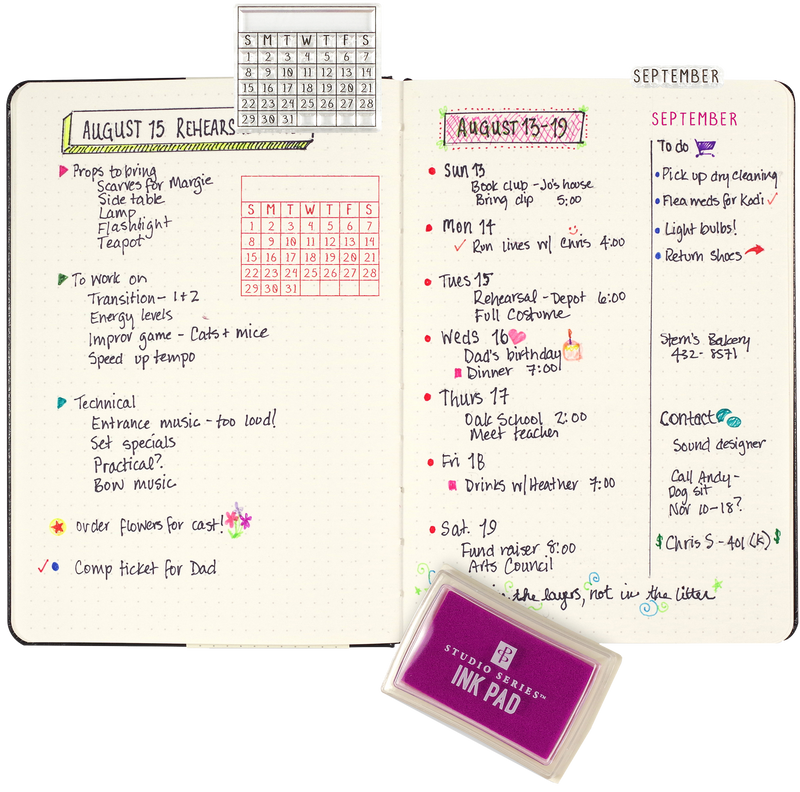 S M T W T F S
1 2 3 4 5 6 7
8 9 10 11 12 13 14
15 16 17 18 19 20 21
22 23 24 25 26 27 28
29 30 31
AUGUST 15 REHEARS
Props to bring
Scarves for Margie
Side table
Lamp
Flashlight
Teapot
S M T W T F S
1 2 3 4 5 6 7
8 9 10 11 12 13 14
15 16 17 18 19 20 21
22 23 24 25 26 27 28
29 30 31
To work on
Transition - 1+2
Energy levels
Improv game - Cats + mice
Speed up tempo
Technical
Entrance music - too loud!
Set specials
Practical?
Bow music
order flowers for cast!
Comp ticket for Dad
AUGUST 13-19
Sun 13
Book club - Jo's house
Bring dip 5:00
Mon 14
Run lines w/ Chris 4:00
Tues 15
Rehearsal - Depot 6:00
Full Costume
Weds 16
Dad's birthday
Dinner 7:00
Thurs 17
Oak School 2:00
Meet teacher
Fri 18
Drinks w/ Heather 7:00
Sat. 19
Fund raiser 8:00
Arts Council
the layers, not in the litter
SEPTEMBER
SEPTEMBER
To do
Pick up dry cleaning
Flea meds for Kodi
Light bulbs!
Return shoes
Stern's Bakery
432-8571
Contact
Sound designer
Call Andy -
Dog sit
Nov 10-18?
$ Chris S - 401 (k) $
STUDIO SERIES™
INK PAD